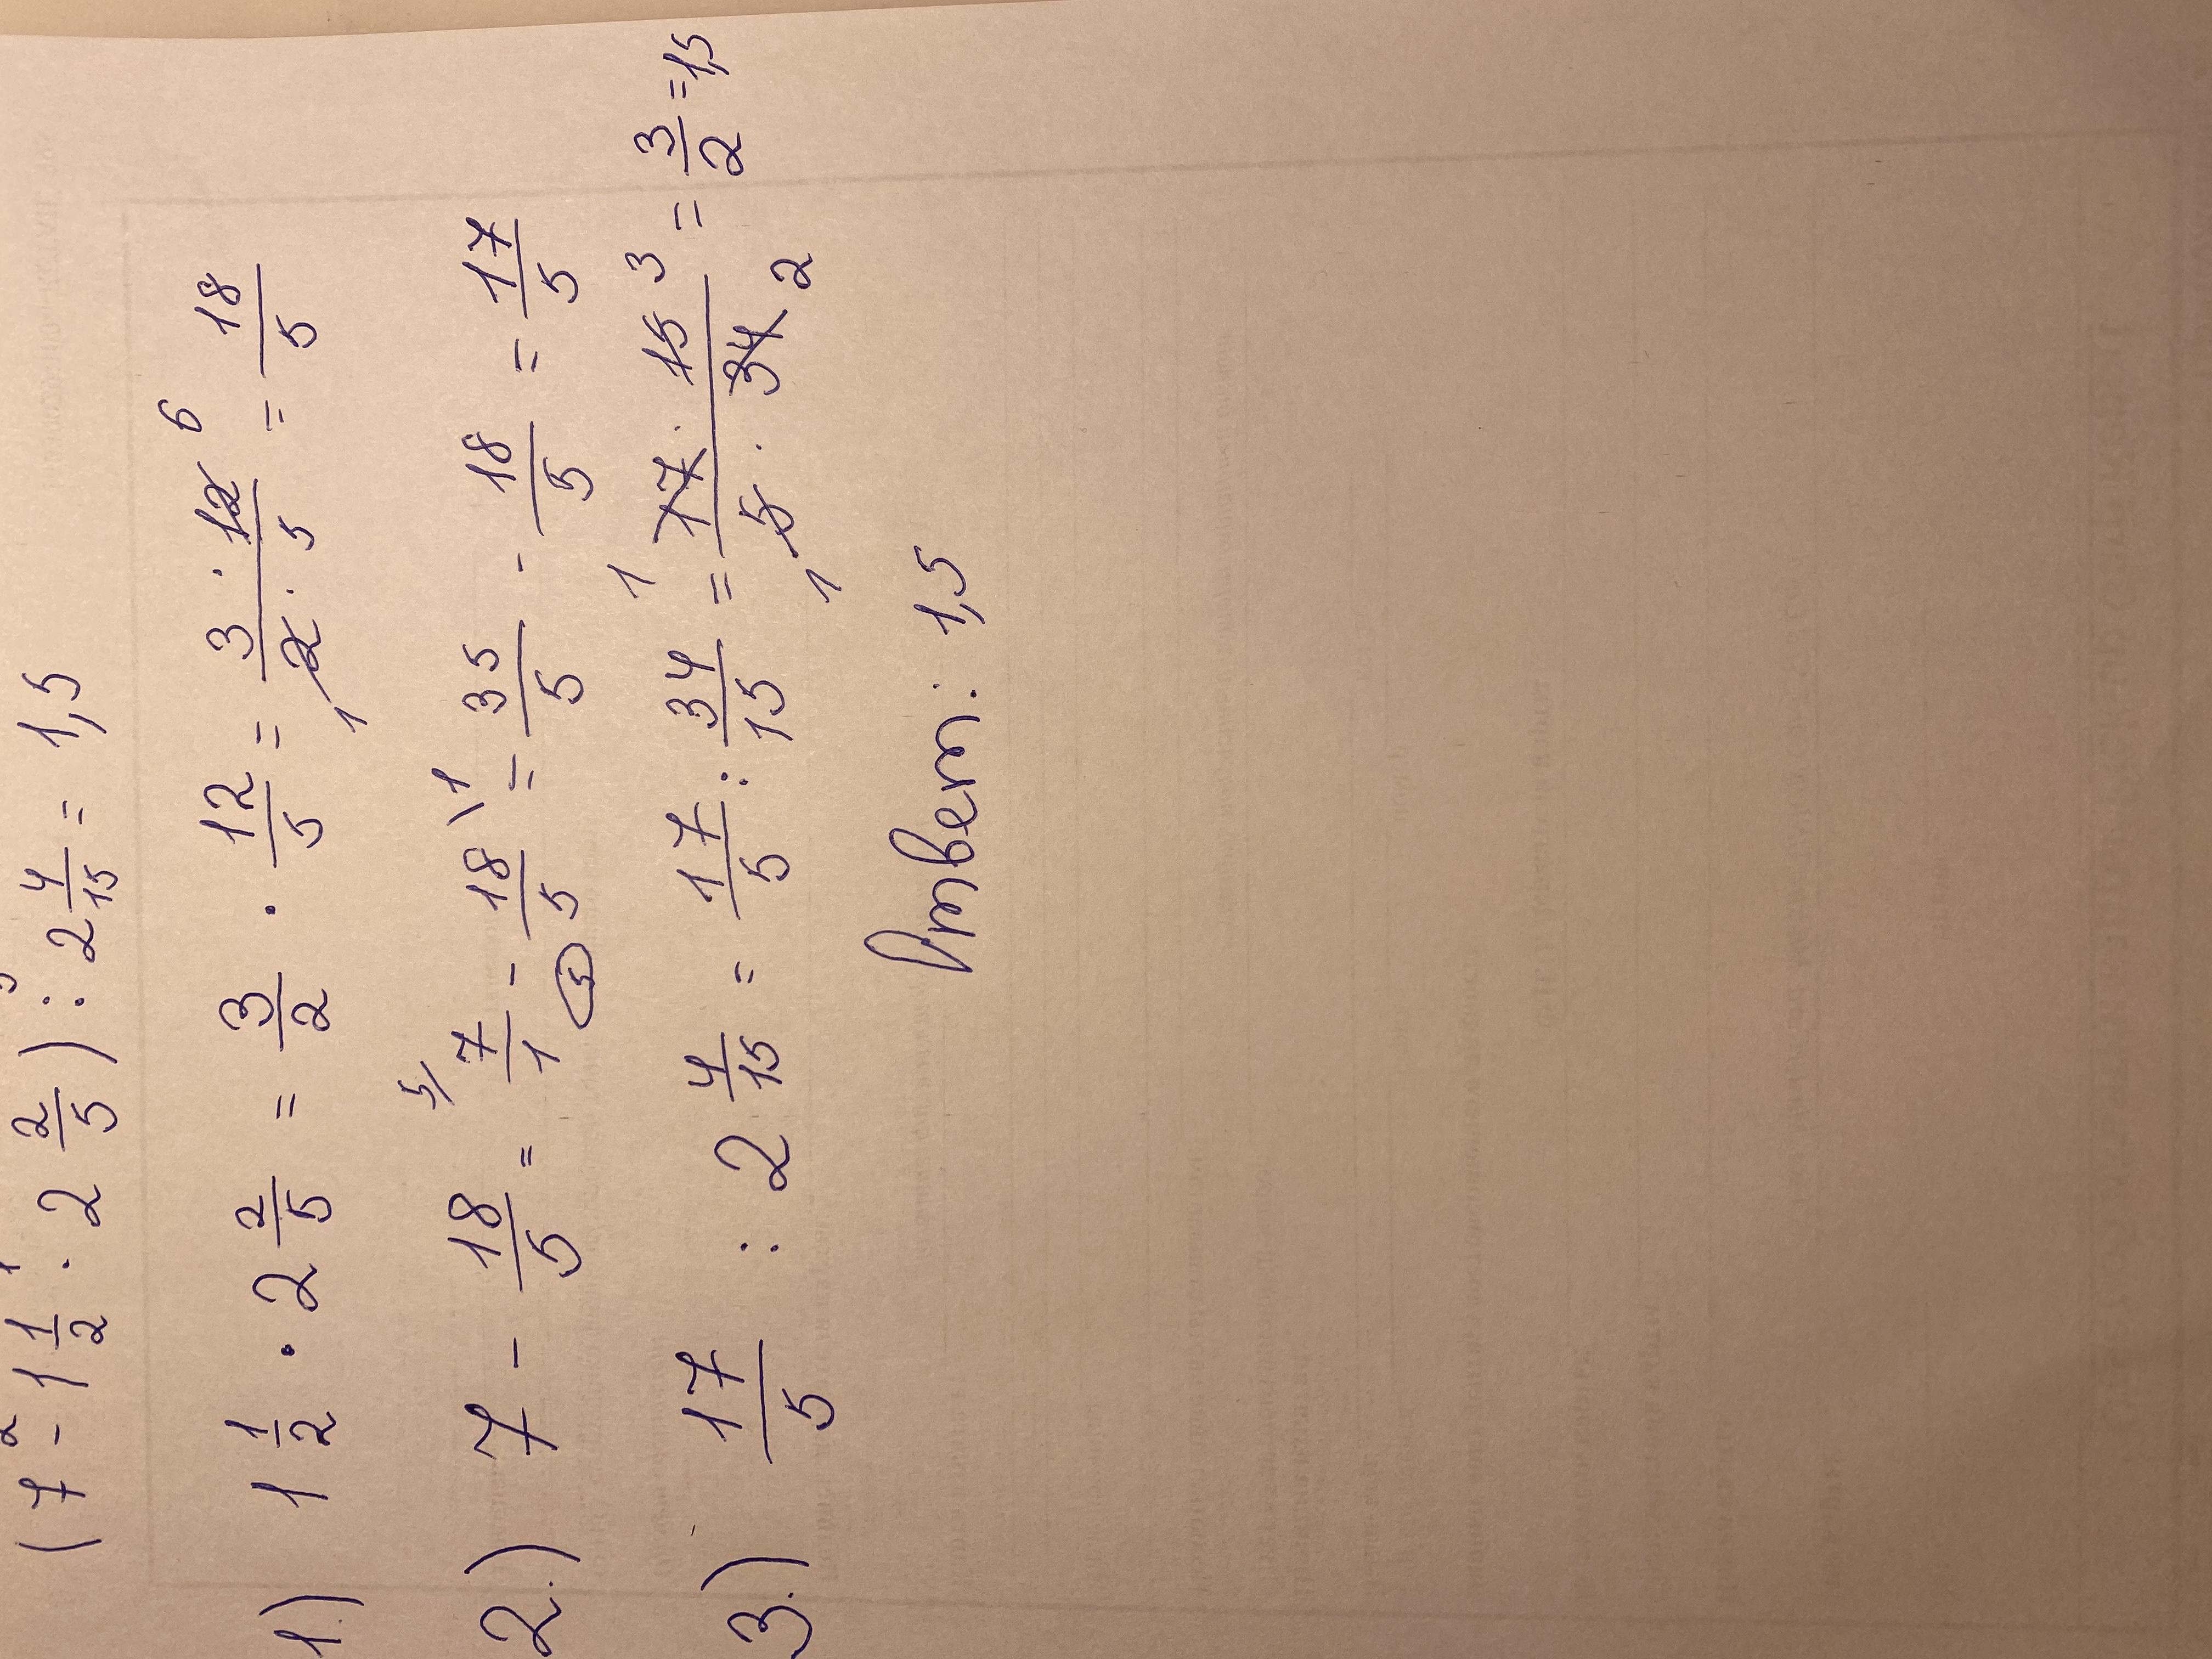 (7 - 1 1/2 · 2 2/5) : 2 4/15 = 1,5
1.) 1 1/2 · 2 2/5 = 3/2 · 12/5 = 3 · 12 6 / 1 2 · 5 = 18/5
2.) 7 - 18/5 = 5/ 7/1 - 18/5 \1 (5) = 35/5 - 18/5 = 17/5
3.) 17/5 : 2 4/15 = 17/5 : 34/15 = 1 17 · 15 3 / 1 5 · 34 2 = 3/2 = 1,5
Ответ: 1,5